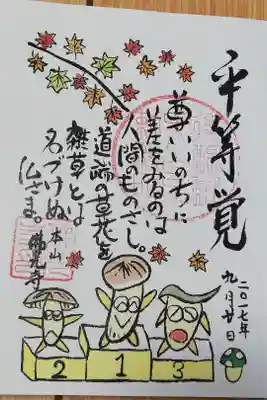 平等覚
尊いいのちに
差をみるのは
人間のものさし。
道端の草花を
雑草とは
名づけぬ
仏さま。
本山
佛光寺
二〇一七年
九月廿日
2
1
3